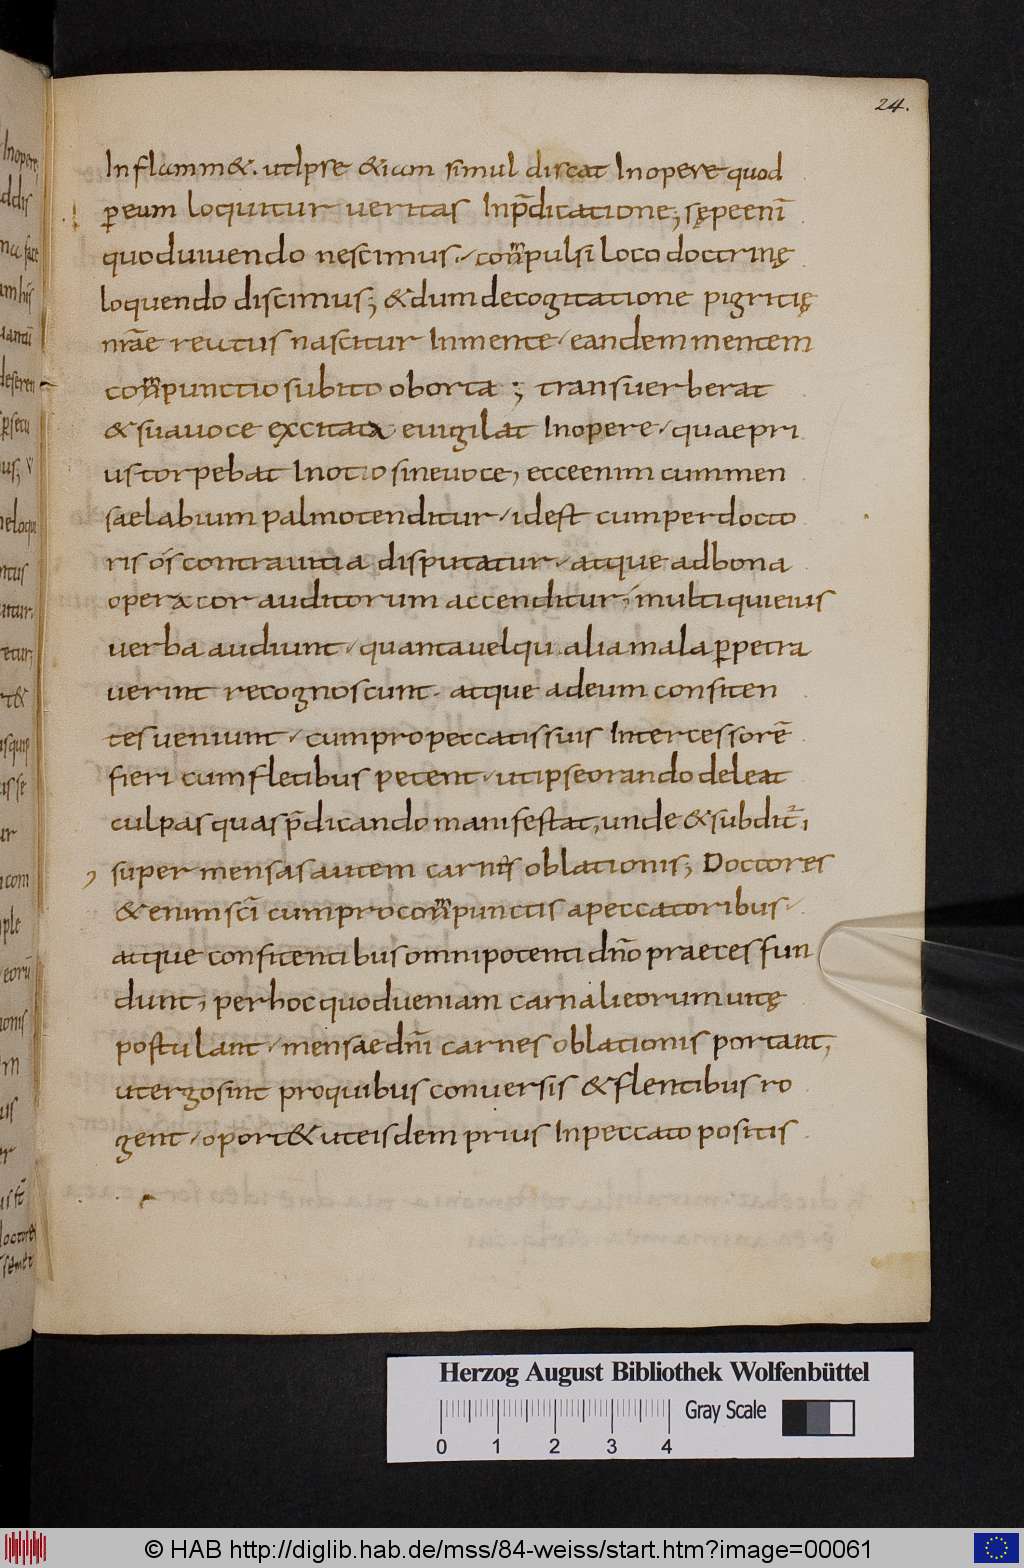 24.
Inflamm&. utIpse &iam simul discat Inopere quod
p̄ eum loquitur ueritas Inp̄dicatione; sępe enī
quod uiuendo nescimus, conpulsi loco doctrinę
loquendo discimus; & dum de cogitatione pigritię
nr̄ae reatus nascitur In mente, eandem mentem
conpunctio subito oborta; transuerberat
& sua uoce excitata euigilat In opere, quae pri
us torpebat In otio sine uoce, ecce enim cum men
sae labium palmo tenditur, id est cum per docto
ris os contra uitia disputatur, atque ad bona
opera cor auditorum accenditur, multi qui eius
uerba audiunt, quanta uel qu alia mala p̄petra
uerint recognoscunt. atque ad eum confiten
tes ueniunt, cum pro peccatis suis Intercessorē
fieri cum fletibus petent, ut ipse orando deleat
culpas quas p̄dicando manifestat, unde & subdit̄;
super mensas autem carnes oblationis; Doctores
& enim sc̄i cum pro conpunctis a peccatoribus,
atque confitentibus omnipotenti dn̄o praeces fun
dunt, per hoc quod ueniam carnali eorum uitę
postulant, mensae dn̄i carnes oblationis portant,
ut ergo sint pro quibus conuersis & flentibus ro
gent, oport& ut eisdem prius In peccato positis
Herzog August Bibliothek Wolfenbüttel
Gray Scale
0 1 2 3 4
© HAB http://diglib.hab.de/mss/84-weiss/start.htm?image=00061